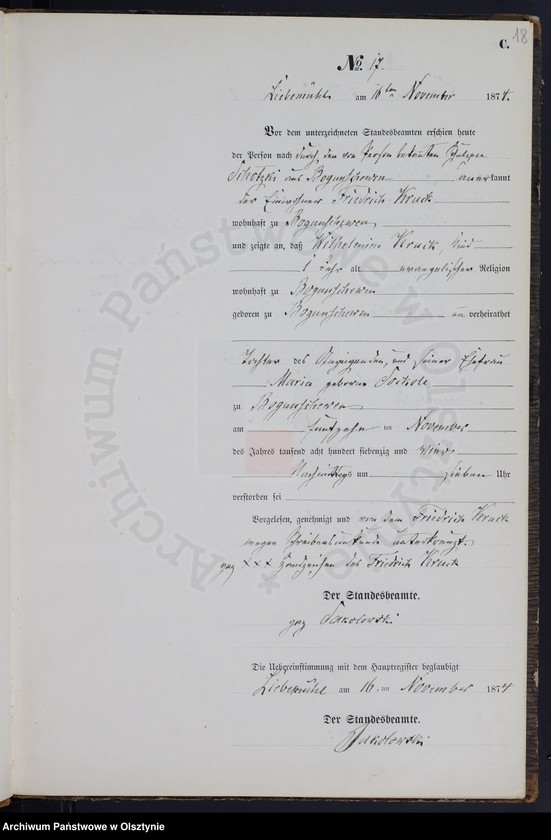 18
C.
No. 17.
Liebemühl am 16ten November 1874.
Vor dem unterzeichneten Standesbeamten erschien heute
der Person nach durch den von Person bekannten Schulzen
aus Bogunschewen anerkannt
der Einwohner Friedrich Kruck
wohnhaft zu Bogunschewen
und zeigte an, daß Wilhelmine Kruck, Kind
1 Jahr alt evangelischer Religion
wohnhaft zu Bogunschewen
geboren zu Bogunschewen unverheirathet
Tochter des Anzeigenden, und seiner Ehefrau
Maria geborne
zu Bogunschewen
am funfzehn ten November
des Jahres tausend acht hundert siebenzig und vier
Nachmittags um sieben Uhr
verstorben sei
Vorgelesen, genehmigt und von dem Friedrich Kruck
wegen Schreibensunkunde unterkreuzt.
gez xxx Handzeichen des Friedrich Kruck
Der Standesbeamte.
gez Sakolowski
Die Uebereinstimmung mit dem Hauptregister beglaubigt
Liebemühl am 16ten November 1874
Der Standesbeamte.
Sakolowski
* Archiwum Państwowe w Olsztynie *
Archiwum Państwowe w Olsztynie